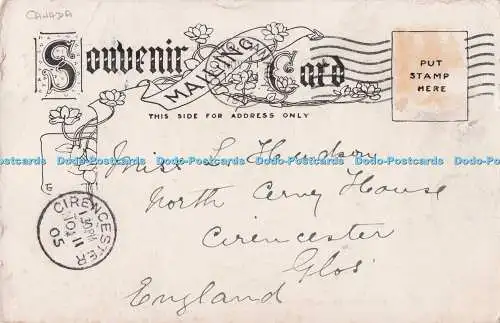 CANADA
Souvenir Card
MAILING
PUT
STAMP
HERE
THIS SIDE FOR ADDRESS ONLY
Miss L
Dodo-Postcards Dodo-Postcards Dodo-Postcards Dodo-Postcards Dodo-Postcards Dodo-Postcards
North Cerney House
Cirencester
Glos
England
CIRENCESTER
1.30PM
11
05